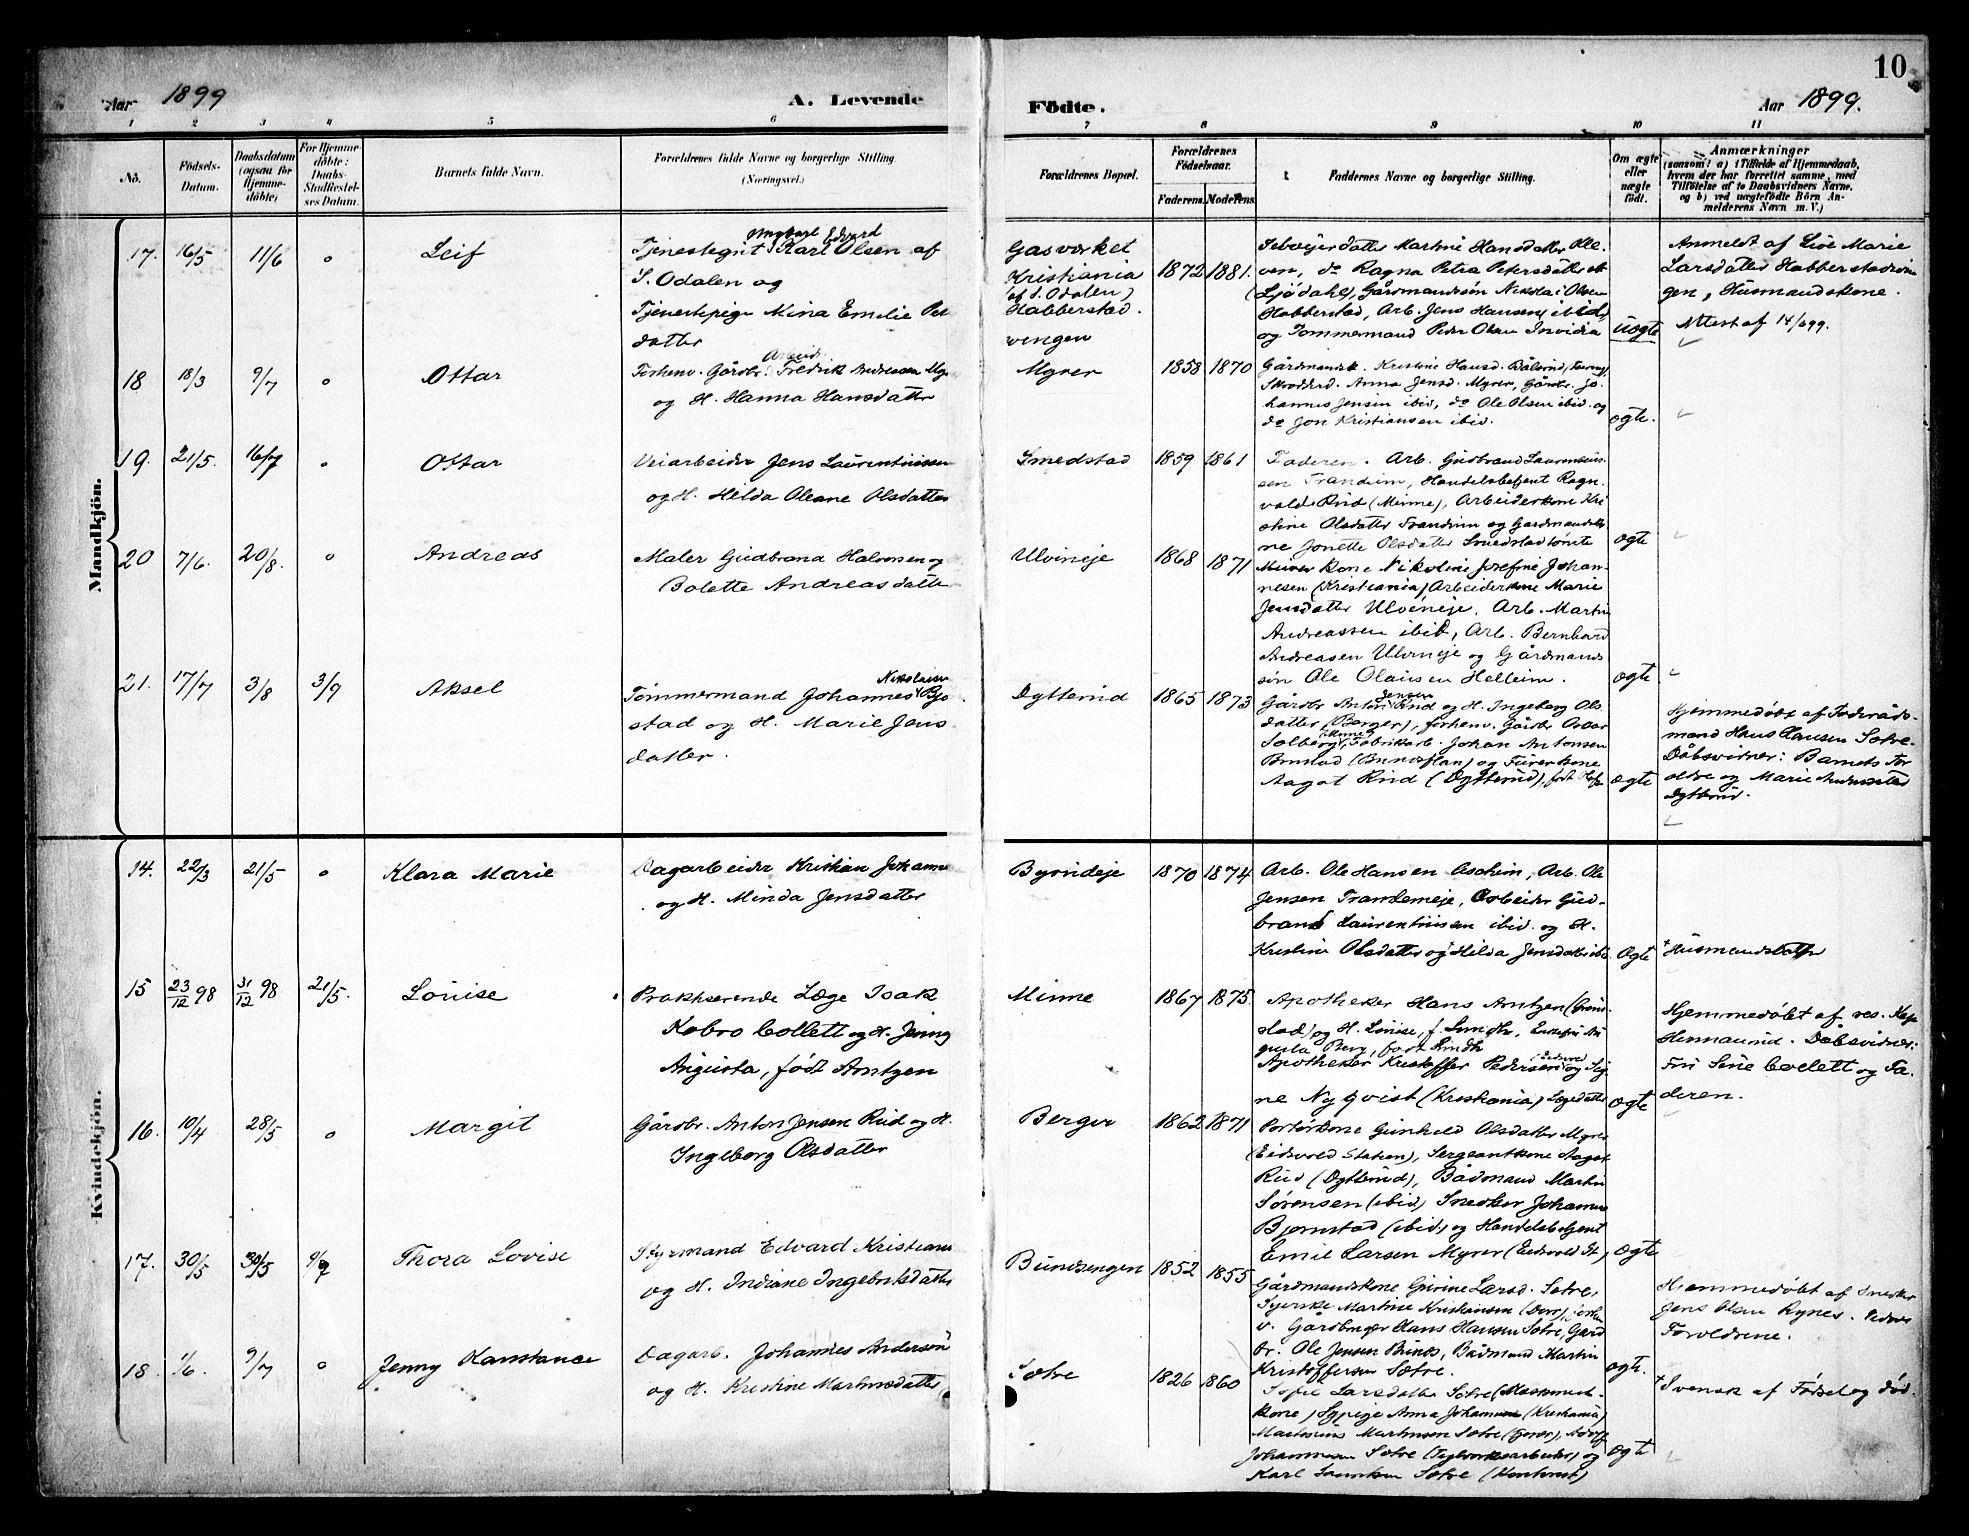 10
Aar 1899
A. Levende
Födte.
Aar 1899.
1 2 3 4 5 6 7 8 9 10 11
No.
Födsels-
Datum.
Daabsdatum
(ogsaa for
Hjemme-
döbte)
For Hjemme-
döbte:
Daabs-
Stadfæstel-
ses Datum.
Barnets fulde Navn.
Forældrenes fulde Navne og borgerlige Stilling.
(Næringsvei.)
Forældrenes Bopæl.
Forældrenes
Födselsaar.
Faderens. Moderens.
Faddernes Navne og borgerlige Stilling.
Om ægte
eller
uægte
födt.
Anmærkninger
(saasom: a) i Tilfælde af Hjemmedaab,
hvem der har forrettet samme, med
Tilföielse af to Daabsvidners Navne,
og b) ved uægtefödte Börn An-
melderens Navn m. V.)
Mandkjön.
17. 16/5 11/6 o Leif
Ungkarl Edvard
Tjenestegut Karl Olsen af
S. Odalen og
Tjenestepige Mina Emilie Pet
datter
Gasværket
Kristiania
(af S. Odalen)
Habberstad.
vingen
1872 1881.
Selveierdatter Martine Hansdatter Kle-
ven, do Ragna Petra Petersdatter
(Ljödahl), Gårdmandssön Nikolai Olsen
Habberstad, Arb. Jens Hansen ibid,
og Tömmermand Peder Olsen
uægte
Anmeldt af Lise Marie
Larsdatter Habberstadvin
gen, Husmandskone.
Attest af 14/6 99.
18 18/3 9/7 o Ottar
Arbeid.
Forhenv. Gårdbr. Fredrik Andreassen My
og H. Hanna Hansdatter
Myrer
1858 1870
Gårdmandsk. Kristine Hansd. Bålsrud,
Anna Jensd. Myrer, Gårdbr. Jo-
hannes Jensen ibid, do Ole Olsen ibid. og
do Jon Kristiansen ibid.
ægte.
19. 21/5. 16/7 o Ottar
Veiarbeider Jens Laurentiussen
og H. Hilda Oleane Olsdatter
Smedstad
1859 1861
Faderen. Arb. Gudbrand Laurentius-
sen Trandum, Handelsbetjent Ragn-
vald Rud (Minne), Arbeiderkone Kri
stine Olsdatter Trandum og Gardmandsdatter
ne Jonette Olsdatter Smedstad
ægte
20 7/6. 20/8. o Andreas
Maler Gudbrand Halvorsen og
Bolette Andreasdatter
Ulvineje
1868 1871
Murer kone Nikoline Josefine Johan-
nesen (Kristiania) Arbeiderkone Marie
Jensdatter Ulvineje. Arb. Martin
Andreassen ibid, Arb. Bernhard
Andreasen Ulvineje og Gårdmands
sön Ole Olausen Helleim.
ægte
21. 17/7 3/8 3/9 Aksel
Nikolaisen
Tömmermand Johannes Bjö
stad og H. Marie Jens
datter.
Dytterud
1865 1873
Jensen
Gårdbr Anton Rud og H. Ingeborg Ols
datter (Berger), forhenv. Gårdbr Oskar
Solberg (Minne), Fabrikarb. Johan Antonsen
Aagot Rud (Dytterud),
ægte
Hjemmedöbt af Föderåds-
mand Hans Hansen Sætre.
Dåbsvidner: Barnets For
ældre og Marie
Dytterud.
Kvindekjön.
14. 22/3 21/5 o Klara Marie
Dagarbeider Kristian Johanne
og H. Minda Jensdatter
Byrudeje
1870 1874
Arb. Ole Hansen Aschim, Arb. Ole
Jensen Trandemeje, Arbeider Gud-
brand Laurentiussen ibid. og H.
Kristine Olsdatter og Hilda Jensdatter ibi
ægte
+Husmandsdatter
15 23/12 98 31/12 98 21/5. Louise
Praktiserende Læge Isak
Kobro Collett og H. Jenny
Augusta, född Arntzen
Minne
1867 1875.
Apotheker Hans Arntzen (Grim-
stad) og H. Louise, f. Lundh, Enkefru Au
gusta Berg, född Lundh
Apotheker Kristoffer Pedersen og Sig
ne Nyqvist (Kristiania)
ægte
Hjemmedöbt af res. Kap
Hennaund. Dåbsvidner:
Fru Sine Collett og Fa-
deren.
16. 10/4 28/5 o Margit
Gårdbr. Anton Jensen Rud og H.
Ingeborg Olsdatter
Berger
1862 1871
Portörkone Gunhild Olsdatter Myrer
(Eidsvold Station), Sergeantkone Aagot
Rud (Dytterud), Bådmand Martin
Sörensen (ibid) Snedker Johannes
Bjørnstad (ibid) og Handelsbetjent
Emil Larsen Myrer (Eidsvold St,)
ægte
17. 30/5 30/5 9/7 Thora Lovise
Styrmand Edvard Kristianse
og H. Indiane Ingebretsdatter
Bundsengen
1852 1855
Gårdmandskone Gurine Larsd. Sætre,
Syerske Martine Kristiansen
v. Gårdbruger Hans Hansen Sætre, Gård
br. Ole Jensen, Bådmand Martin
Kristoffersen Sætre.
ægte.
Hjemmedöbt af Snedker
Jens Olsen Rynes. Vidner
Forældrene.
18. 1/6. 9/7 o Jenny Konstance
Dagarb. Johannes Andersön
og H. Kristine Martinsdatter
Sætre
1826 1860
Sofie Larsdatter Sætre (Maskinist-
kone, Sypige Anna Johannesen (Kristiania)
Martinius Martinsen Sætre
Johannessen Sætre (Teglverksarbeider) og
Karl Sætre
ægte
+Svensk af Födsel og död.